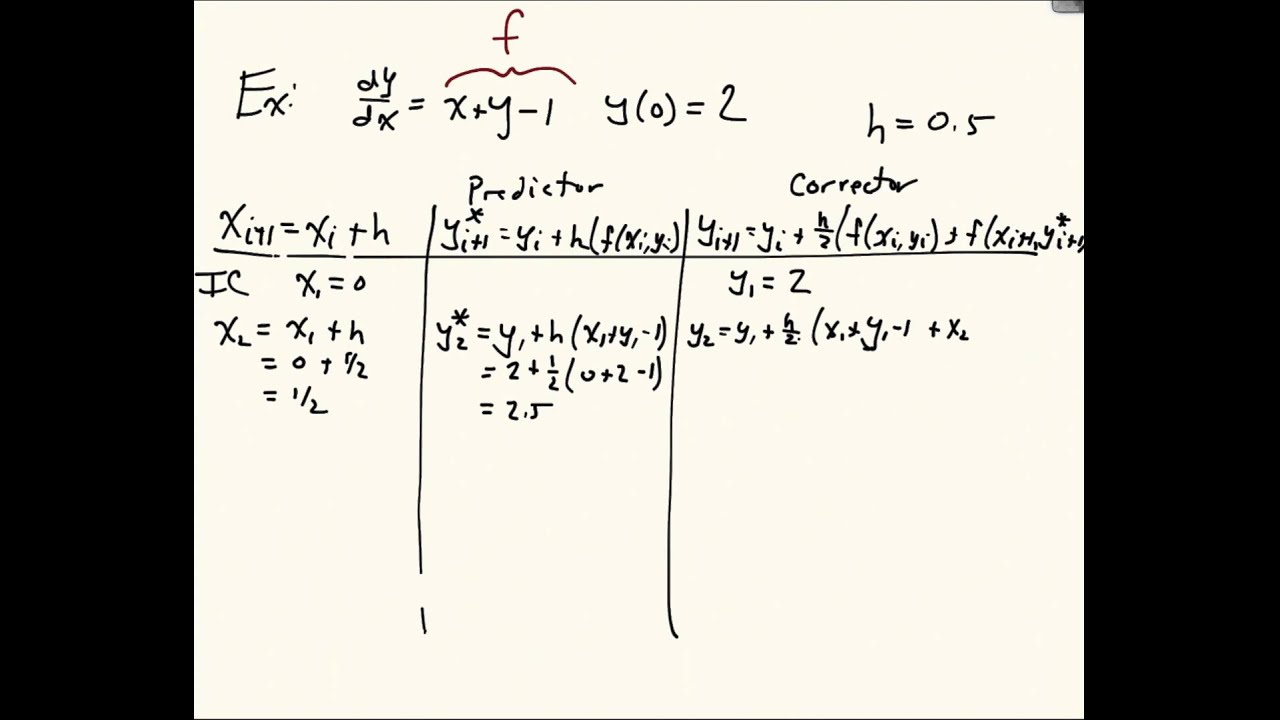 f
Ex: dy/dx = x+y-1 y(0) = 2 h = 0.5
Predictor Corrector
x_{i+1} = x_i + h y*_{i+1} = y_i + h(f(x_i,y_i) y_{i+1} = y_i + h/2(f(x_i,y_i) + f(x_{i+1},y*_{i+1})
IC x_1 = 0 y_1 = 2
x_2 = x_1 + h y_2* = y_1 + h(x_1+y_1-1) y_2 = y_1 + h/2 (x_1+y_1-1 + x_2
= 0 + 1/2 = 2 + 1/2(0+2-1)
= 1/2 = 2.5